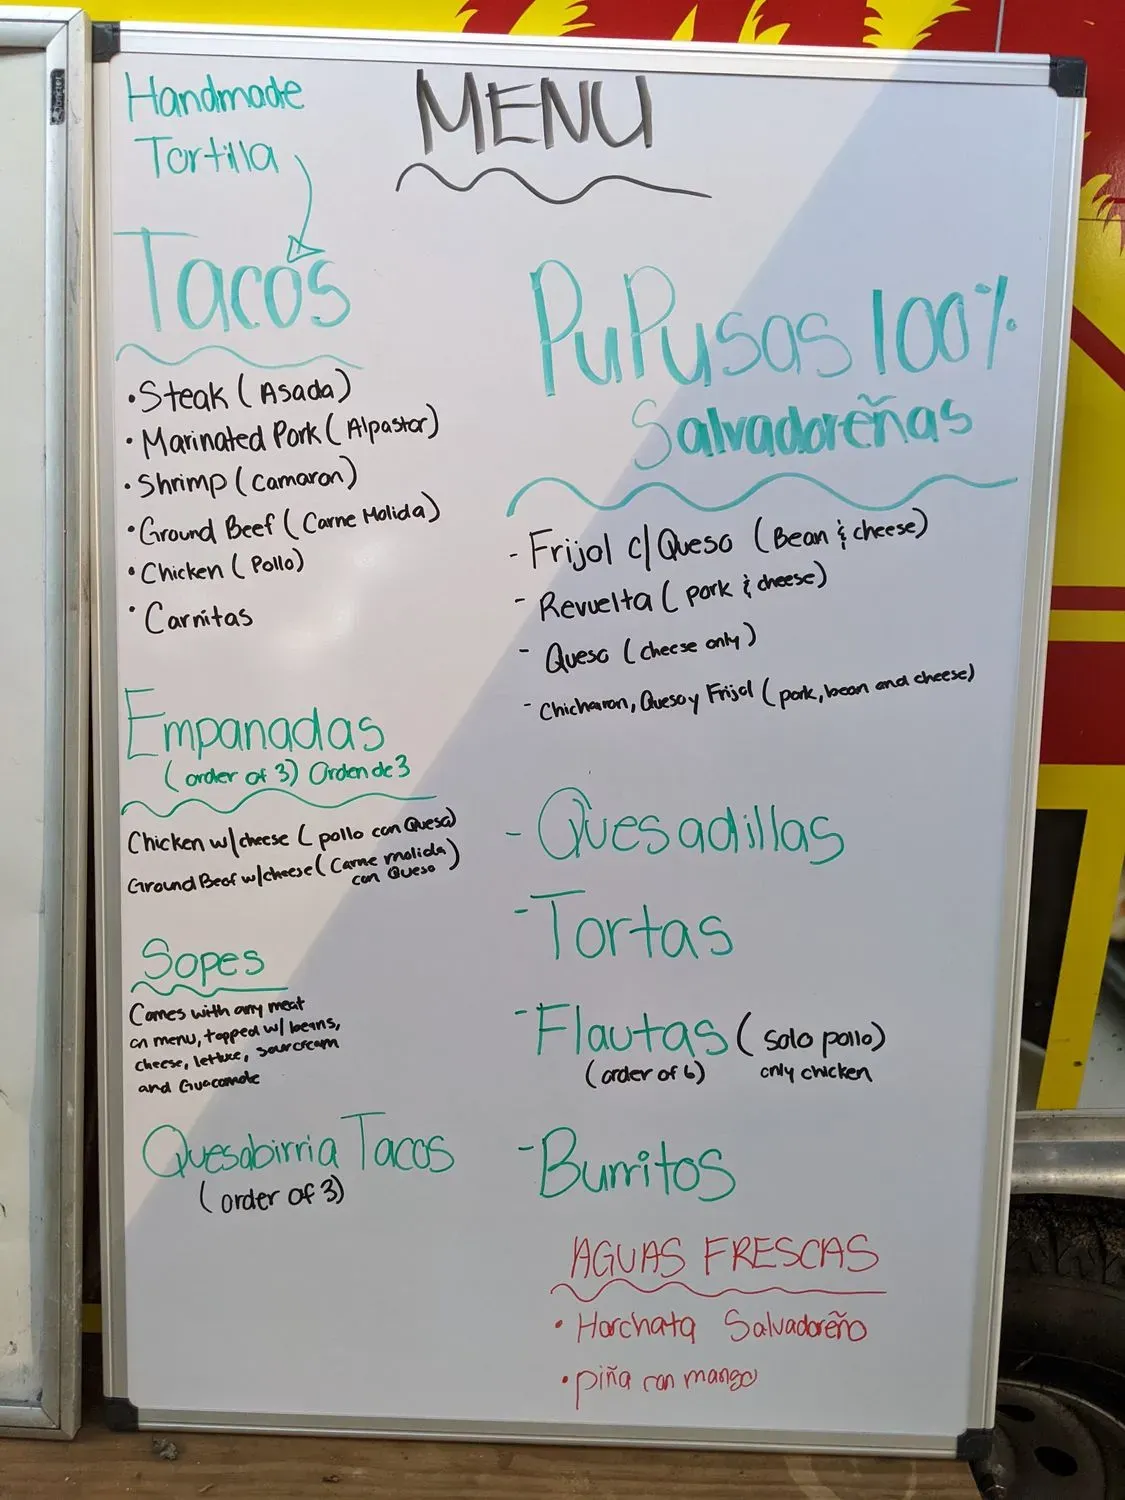 MENU
Handmade
Tortilla
Tacos
• Steak (Asada)
• Marinated Pork (Alpastor)
• Shrimp (Camaron)
• Ground Beef (Carne Molida)
• Chicken (Pollo)
• Carnitas
Empanadas
(order of 3) Orden de 3
Chicken w/cheese (pollo con Queso)
Ground Beef w/cheese (Carne molida
con Queso)
Sopes
Comes with any meat
on menu, topped w/ beans,
cheese, lettuce, sourcream
and Guacamole
Quesabirria Tacos
(order of 3)
PuPusas 100%
Salvadoreñas
- Frijol c/Queso (Bean & cheese)
- Revuelta (pork & cheese)
- Queso (cheese only)
- Chicharon, Queso y Frijol (pork, bean and cheese)
- Quesadillas
- Tortas
- Flautas (solo pollo)
(order of 6) only chicken
- Burritos
AGUAS FRESCAS
• Horchata Salvadoreño
• piña con mango